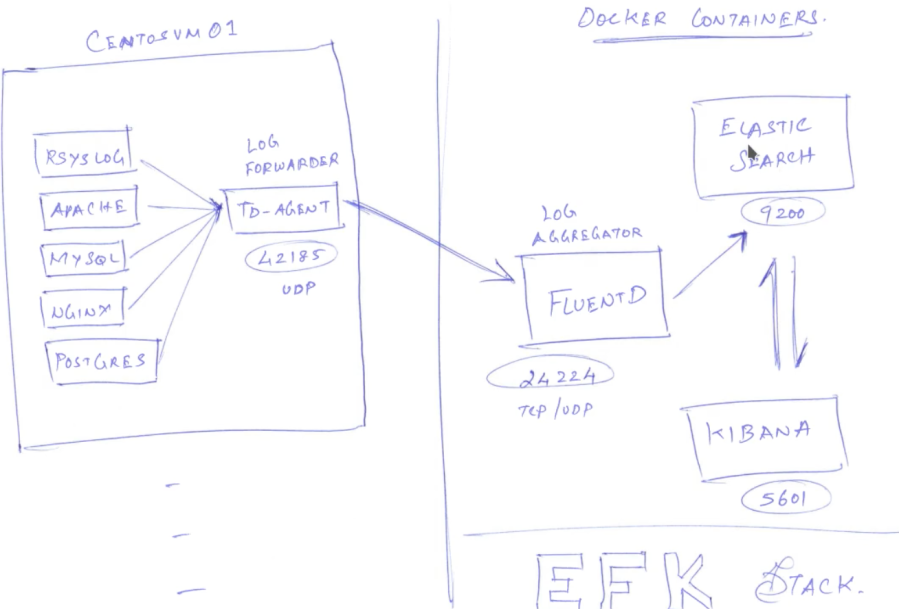 CENTOSVM01
RSYSLOG
APACHE
MYSQL
NGINX
POSTGRES
LOG
FORWARDER
TD-AGENT
42185
UDP
DOCKER CONTAINERS.
LOG
AGGREGATOR
FLUENTD
24224
TCP/UDP
ELASTIC
SEARCH
9200
KIBANA
5601
EFK STACK.